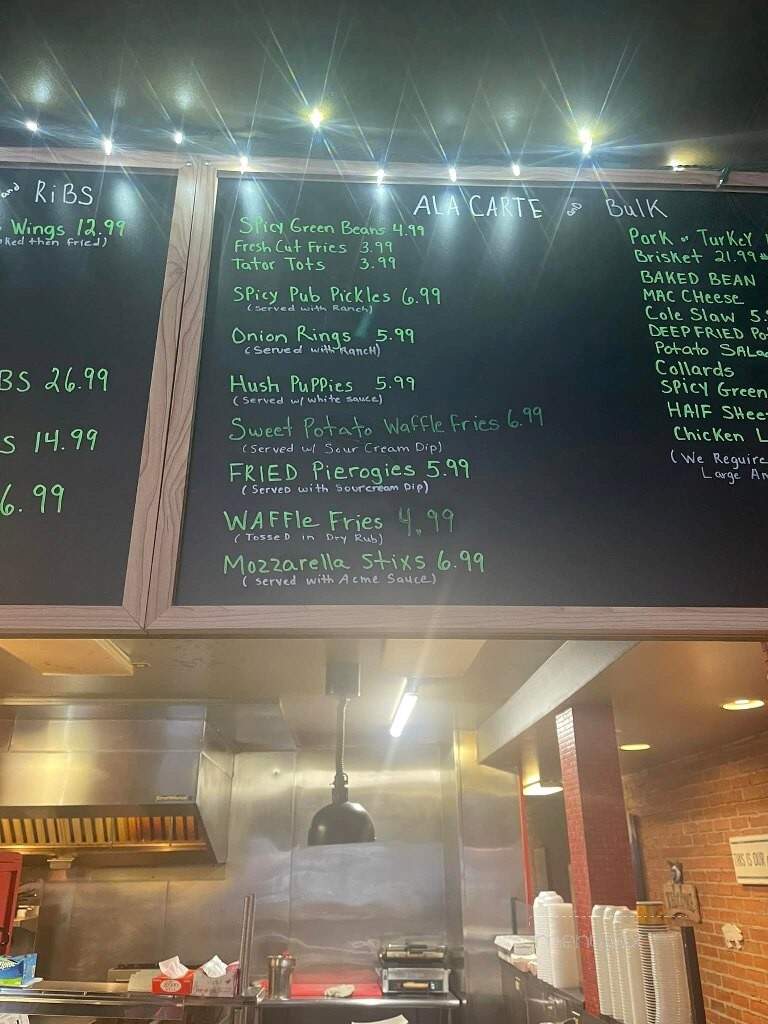 and RiBS
Wings 12.99
ked then fried)
BS 26.99
S 14.99
6.99
ALA CARTE and BulK
Spicy Green Beans 4.99
Fresh Cut Fries 3.99
Tator Tots 3.99
Spicy Pub Pickles 6.99
(Served with Ranch)
Onion Rings 5.99
(Served with Ranch)
Hush Puppies 5.99
(Served w/ white sauce)
Sweet Potato Waffle Fries 6.99
(Served w/ Sour Cream Dip)
FRIED Pierogies 5.99
(Served with Sourcream Dip)
WAFFle Fries 4.99
(Tossed in Dry Rub)
Mozzarella Stixs 6.99
(Served with Acme Sauce)
Pork or Turkey
Brisket 21.99
BAKED BEAN
MAC CHeese
Cole Slaw 5.
DEEP FRIED Po
Potato SALa
Collards
Spicy Green
HAlF SHee
Chicken L
(We Require
Large An
THIS IS OUR